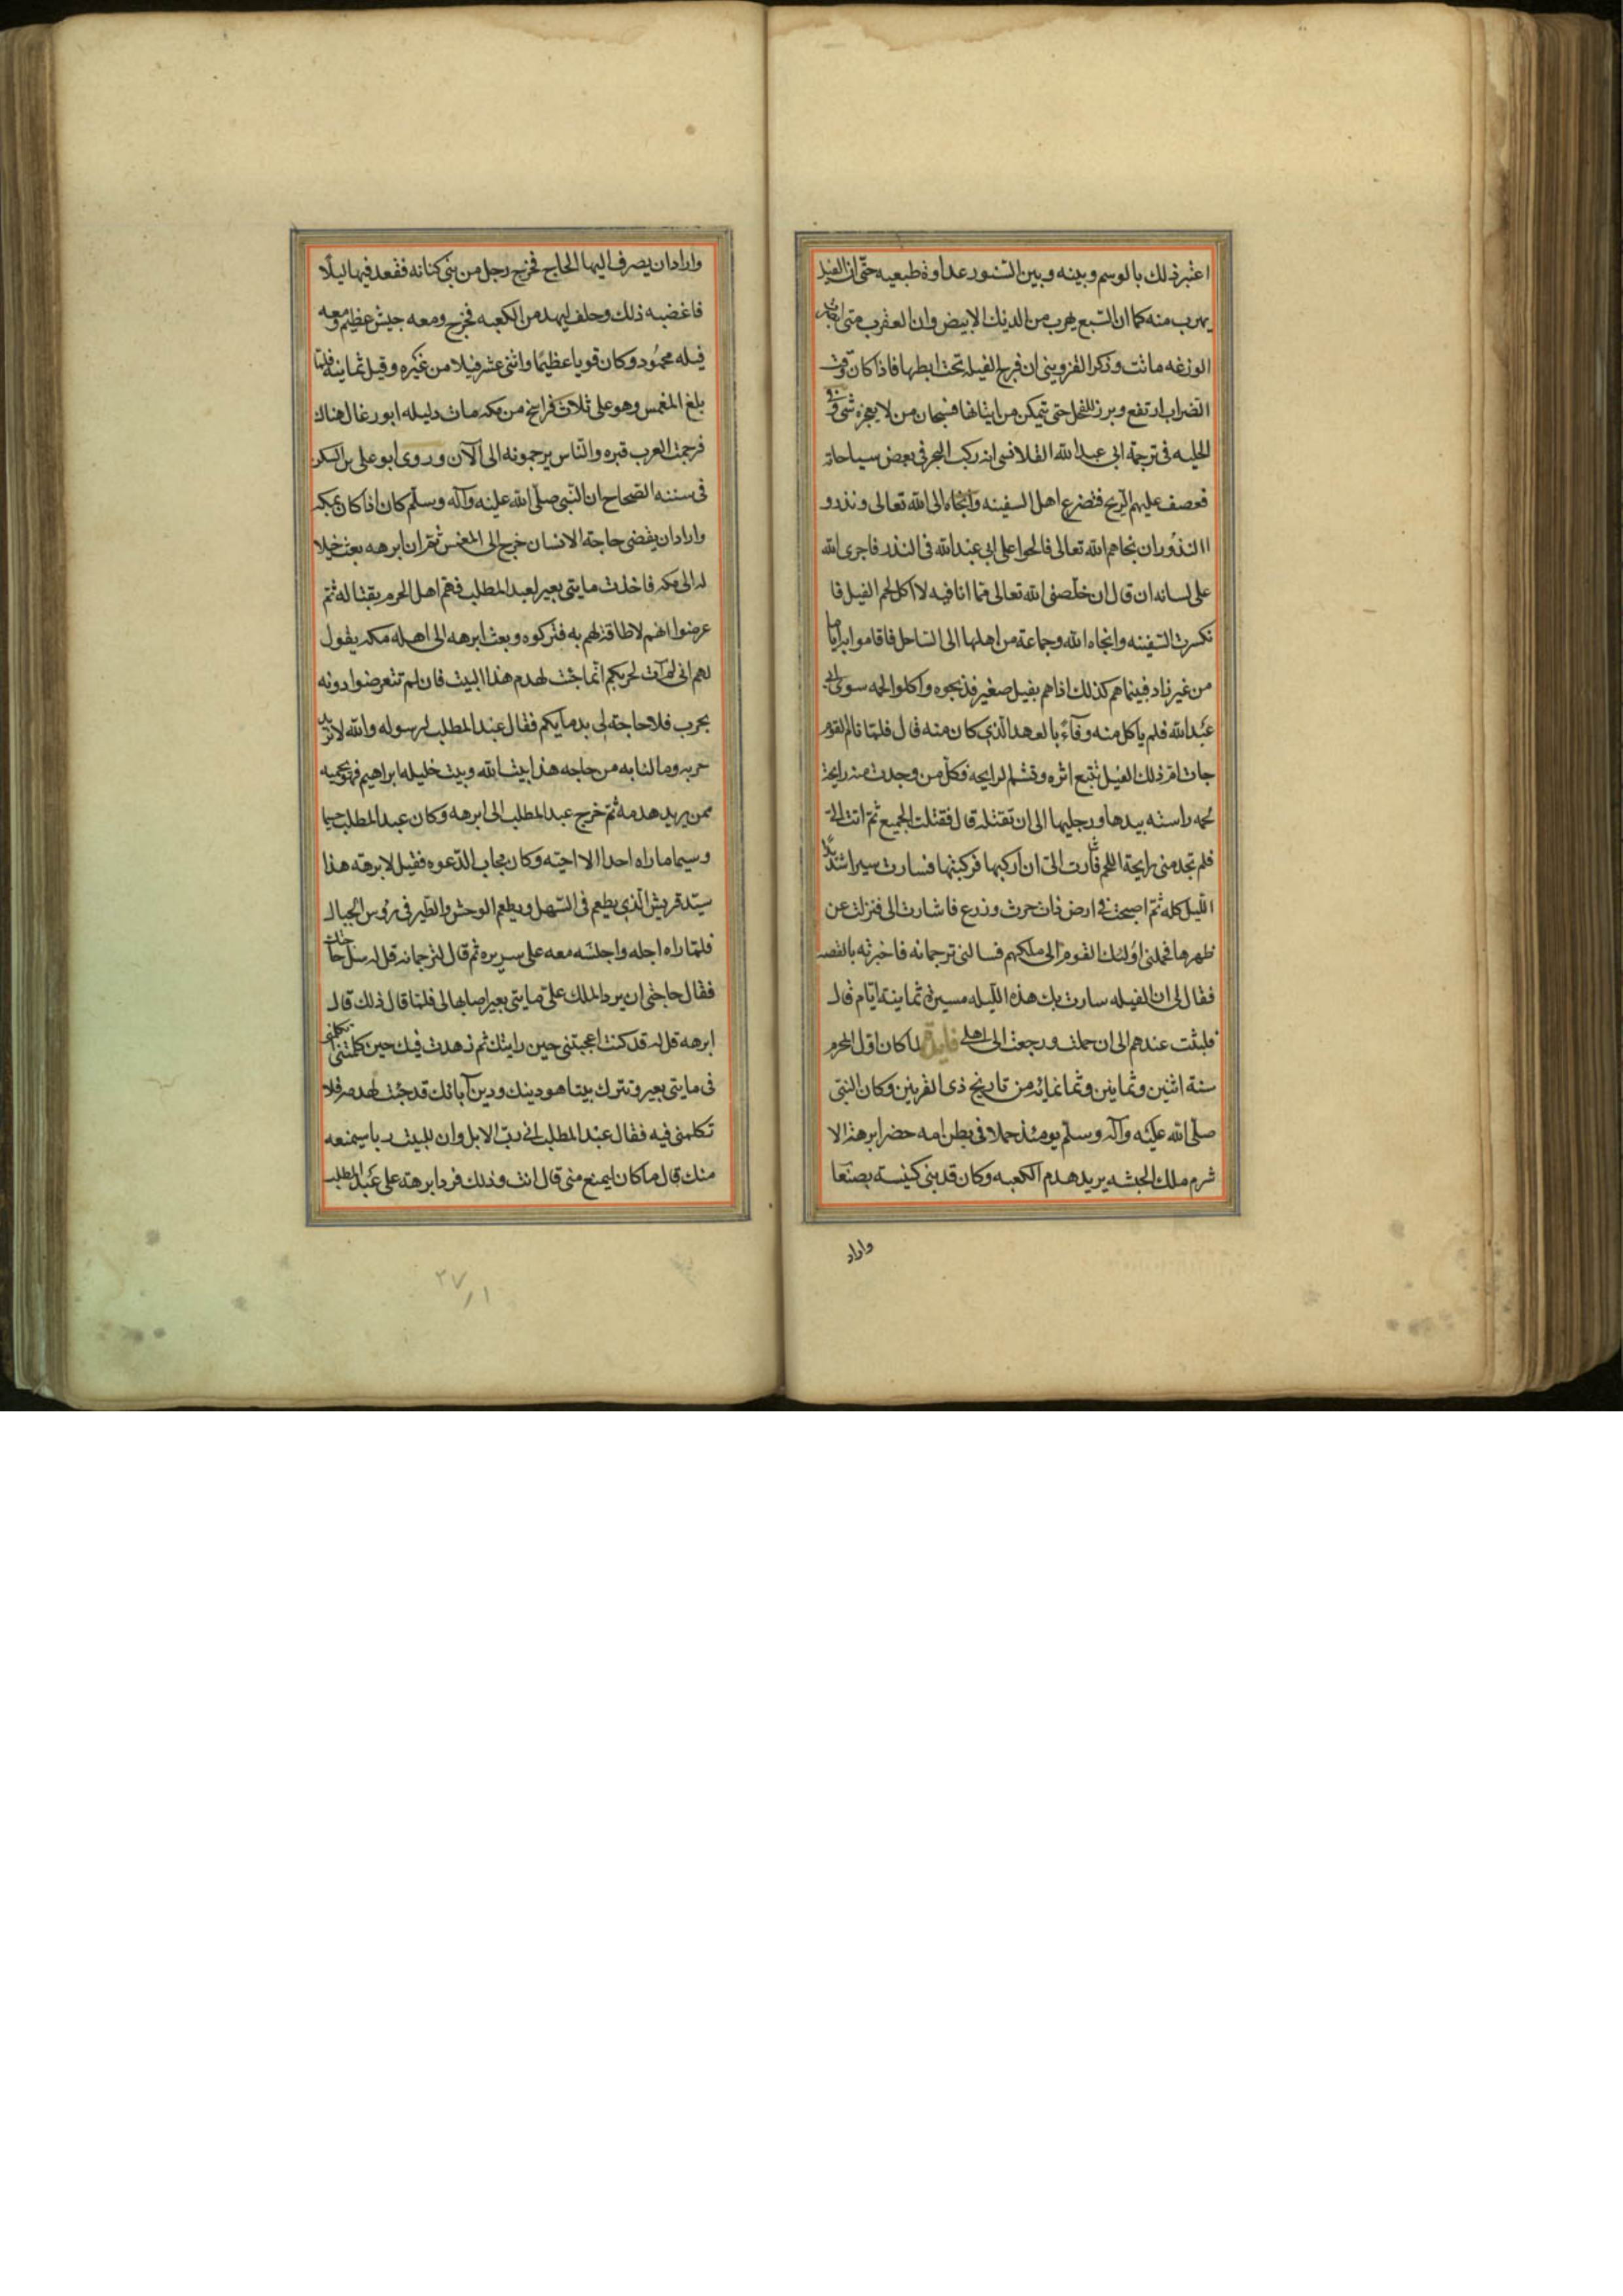 اعتبر ذلك بالوسم وبينه وبين السنور عداوة طبعيه حتى ان الفيل
يهرب منه كما ان السبع يهرب من الديك الابيض وان العقرب متى ابصرت
الوزغه ماتت وذكر القزويني ان فرج الفيله تحت ابطها فاذا كان وقت
الضراب ارتفع وبرز للفحل حتى يتمكن من ايتانها فسبحان من لا يعجزه شي وفي
الحليه في ترجمة ابي عبد الله القلانسى انه ركب البحر في بعض سياحاته
فعصف عليهم الريح فتضرع اهل السفينه والنجاه الى الله تعالى ونذرو
االنذوران نجاهم الله تعالى فالحوا على ابي عبد الله في النذر فاجرى الله
على لسانه ان قال ان خلصنى الله تعالى مما انا فيه لا اكل لحم الفيل فا
نكسرت السفينه وانجاه الله وجماعة من اهلها الى الساحل فاقاموا به اياما
من غير زاد فبينما هم كذلك اذا هم بفيل صغير فذبحوه واكلوا لحمه سوى ابي
عبد الله فلم ياكل منه وفآءً بالعهد الذي كان منه قال فلما نام القوم
جات ام ذلك الفيل تتبع اثره وتشم الرايحه فكل من وجدت منه رايحة
لحمه داسته بيدها ورجليها الى ان تقتله قال فقتلت الجميع ثم اتت الى
فلم تجد منى رايحة اللحم فاشارت الى ان اركبها فركبتها فسارت سيرا شديدًا
الليل كله ثم اصبحت في ارض ذات حرث وزرع فاشارت الى فنزلت عن
ظهرها فحملنى اولئك القوم الى ملكهم فسالنى ترجمانه فاخبرته بالقصه
فقال لى ان الفيله سارت بك هذه الليله مسيرة ثمانية ايام قال
فلبثت عندهم الى ان حملت ورجعت الى اهلى فايدة لما كان اول المحرم
سنة اثنين وثمانين وثمانمائه من تاريخ ذى القرنين وكان النبي
صلى الله عليه وآله وسلم يومئذ حملا في بطن امه حضر ابرهة الا
شرم ملك الحبشه يريد هدم الكعبه وكان قد بنى كنيسة بصنعا
واراد
واراد ان يصرف اليها الحاج فخرج رجل من بنى كنانه فقعد فيها ليلًا
فاغضبه ذلك وحلف ليهدمن الكعبه فخرج ومعه جيش عظيم ومعه
فيله محمود وكان قويا عظيمًا واثنى عشر فيلا من غيره وقيل ثمانيه فلما
بلغ المغمس وهو على ثلاث فراسخ من مكه مات دليله ابو رغال هناك
فرجمت العرب قبره والناس يرجمونه الى الآن وروى ابو على بن السكن
في سننه الصحاح ان النبي صلى الله عليه وآله وسلم كان اذا كان بمكه
واراد ان يقضى حاجة الانسان خرج الى المغمس ثم ان ابرهه بعث خيلا
له الى مكه فاخذت مايتى بعير لعبد المطلب فهم اهل الحرم بقتاله ثم
عرضوا انهم لا طاقة لهم به فتركوه وبعث ابرهه الى اهله مكه يقول
لهم انى لم آت لحربكم انما جئت لهدم هذا البيت فان لم تتعرضوا دونه
بحرب فلا حاجة لى بدمايكم فقال عبد المطلب لرسوله والله لا نريد
حربه وما لنا به من حاجه هذا بيت الله وبيت خليله ابراهيم فهو يحميه
ممن يريد هدمه ثم خرج عبد المطلب الى ابرهه وكان عبد المطلب جسيما
وسيما ما راه احدا الا احبه وكان مجاب الدعوه فقيل لابرهة هذا
سيد قريش الذي يطعم في السهل ويطعم الوحش والطير في رؤس الجبال
فلما راه اجله واجلسه معه على سريره ثم قال لترجمانه قل له سل حاجتك
فقال حاجتى ان يرد الملك على مايتى بعير اصابها لى فلما قال ذلك قال
ابرهه قل له قد كنت اعجبتنى حين رايتك ثم زهدت فيك حين كلمتنى اتكلمني
في مايتى بعير وتترك بيتا هو دينك ودين آبائك قد جئت لهدمه فلا
تكلمنى فيه فقال عبد المطلب انى رب الابل وان للبيت ربا سيمنعه
منك قال ما كان ليمنع منى قال انت وذلك فرد ابرهة على عبد المطلب
٢٧/١